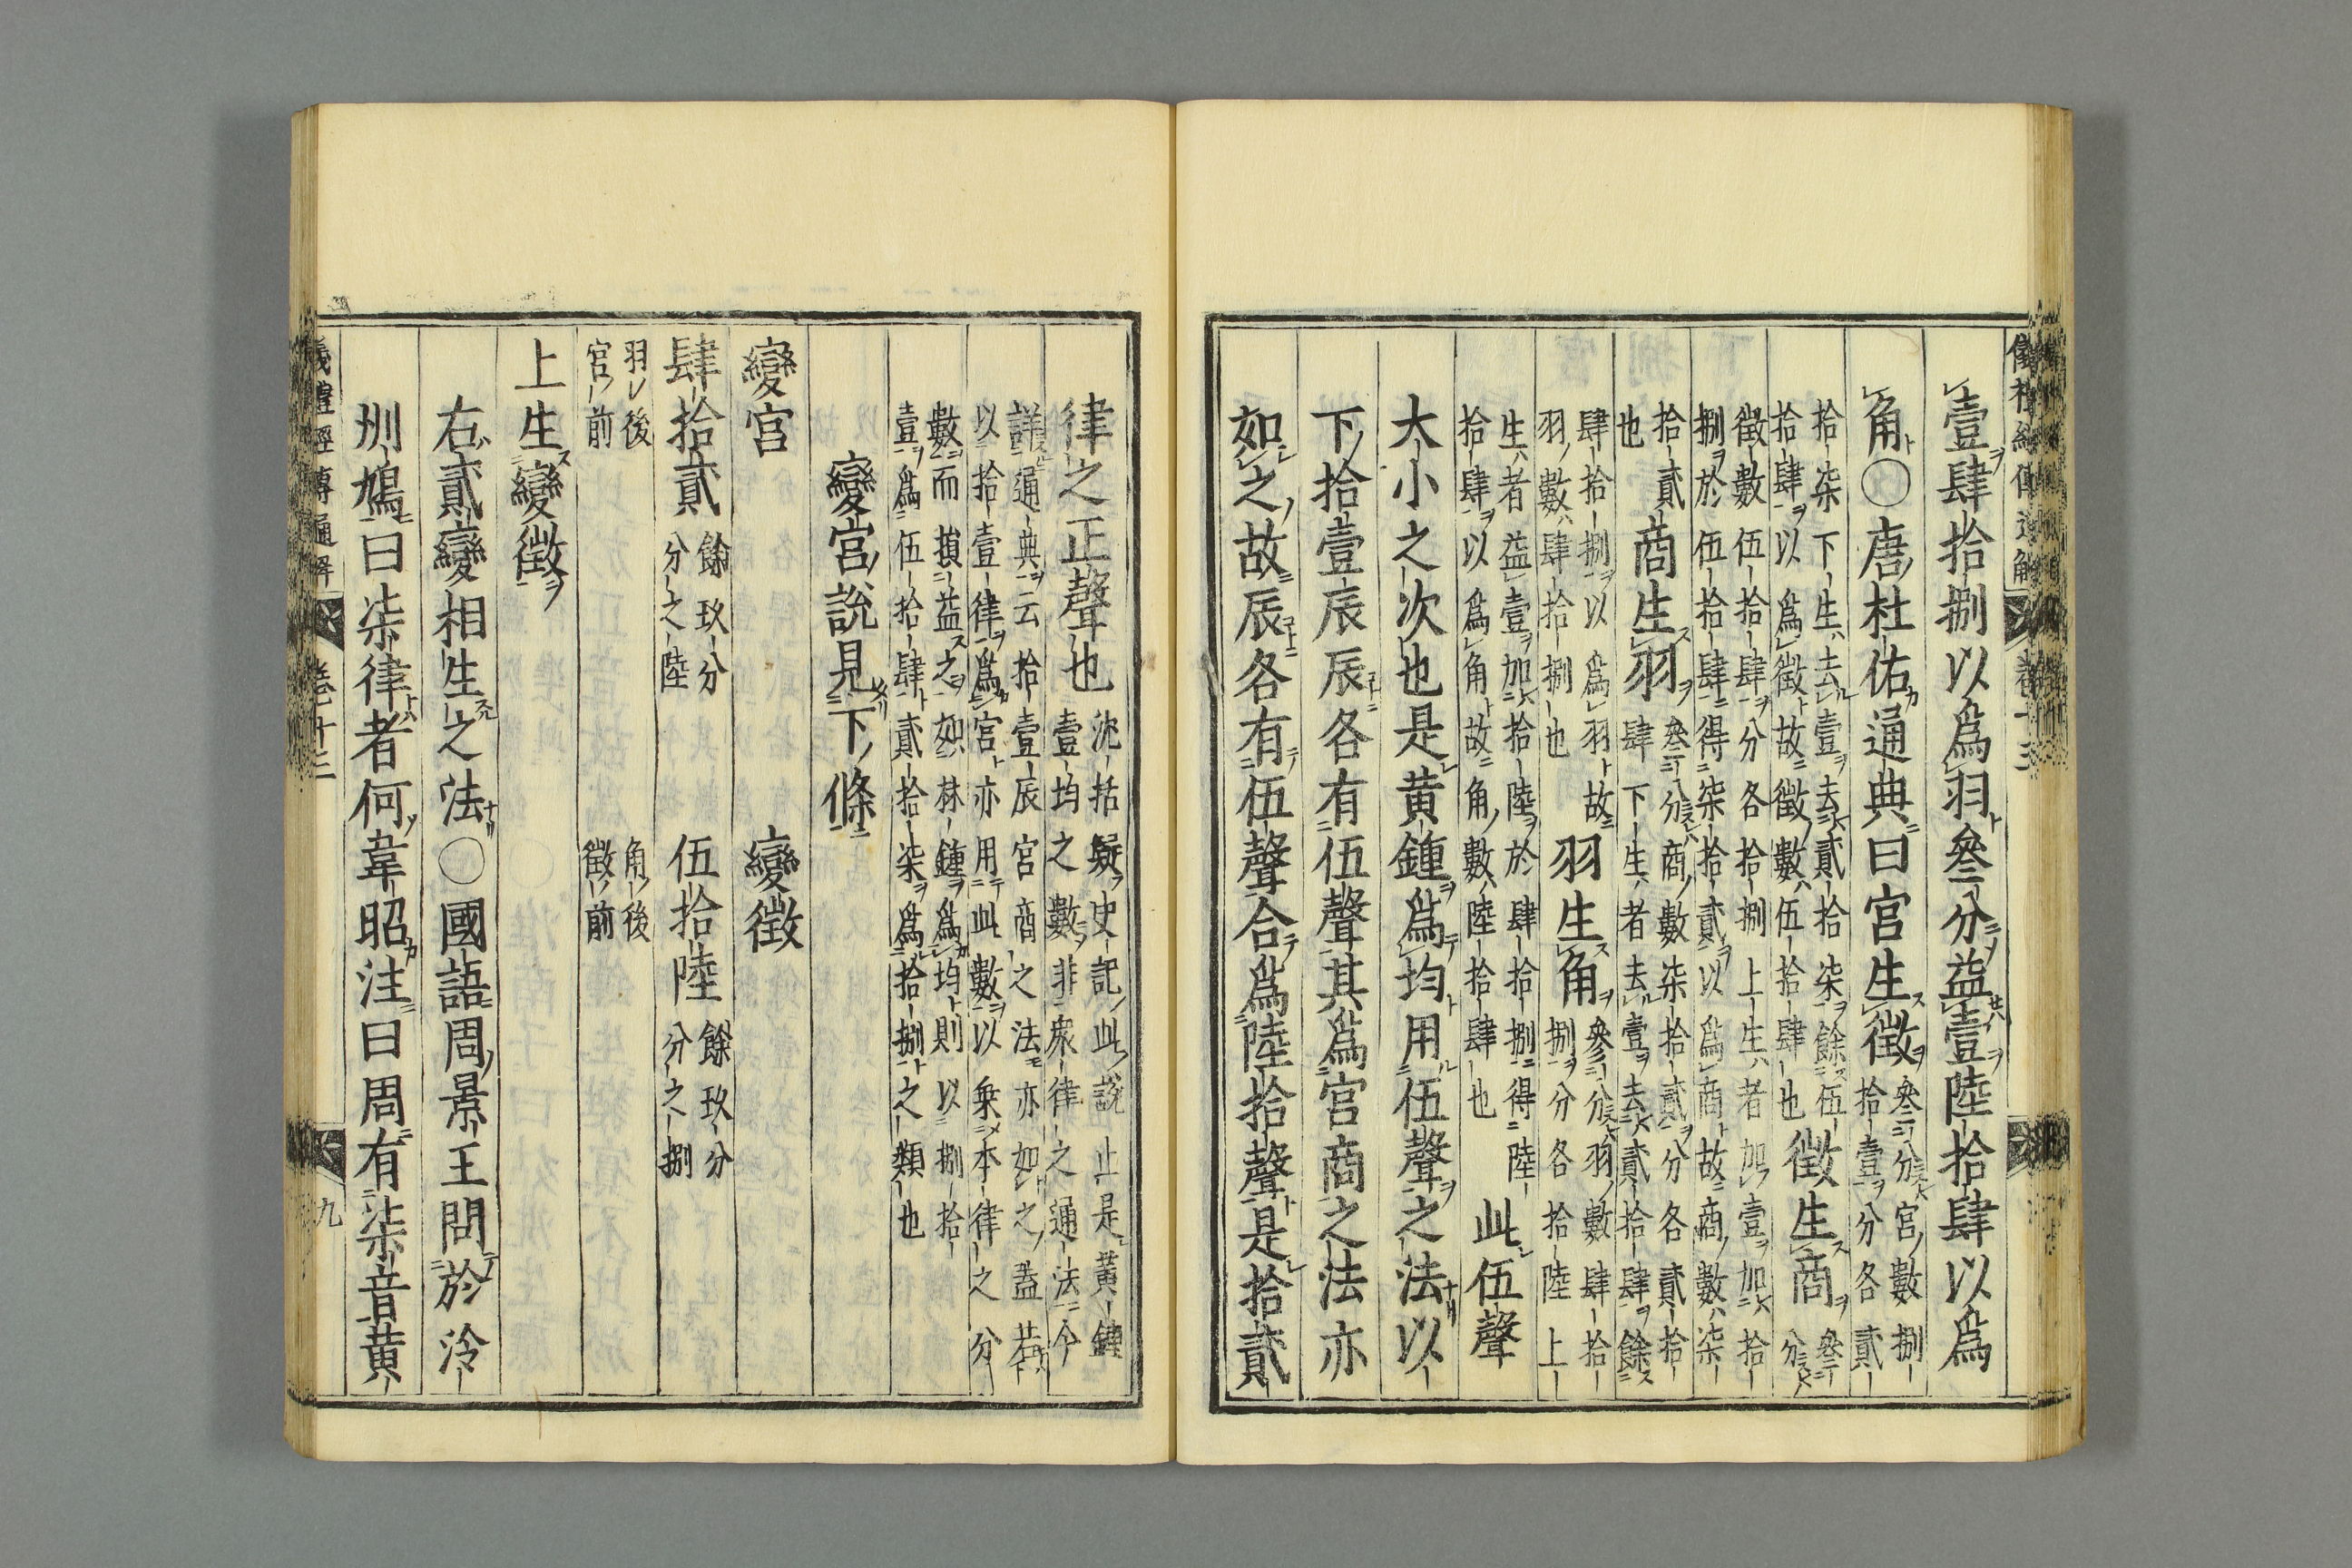 壹肆拾捌以爲羽叄分益壹陸拾肆以爲
角○唐杜佑通典曰宮生徵
叄分宮數捌
拾壹分各貳
拾柒下生去壹去貳拾柒餘伍
拾肆以爲徵故徵數伍拾肆也
徵生商
叄
分
徵數伍拾肆分各拾捌上生者加壹加拾
捌於伍拾肆得柒拾貳以爲商故商數柒
拾貳
也
商生羽
叄分商數柒拾貳分各貳拾
肆下生者去壹去貳拾肆餘
肆拾捌以爲羽故
羽數肆拾捌也
羽生角
叄分羽數肆拾
捌分各拾陸上
生者益壹加拾陸於肆拾捌得陸
拾肆以爲角故角數陸拾肆也
此伍聲
大小之次也是黃鍾爲均用伍聲之法以
下拾壹辰辰各有伍聲其爲宮商之法亦
如之故辰各有伍聲合爲陸拾聲是拾貳
律之正聲也
沈括疑史記此說止是黃鍾
壹均之數非衆律之通法今
詳通典云拾壹辰宮商之法亦如之蓋若
以拾壹律爲宮亦用此數以乗本律之分
數而損益之如林鍾爲均則以捌拾
壹爲伍拾肆貳拾柒爲拾捌之類也
變宮說見下條
變宮
變徵
肆拾貳
餘玖分
分之陸
伍拾陸
餘玖分
分之捌
羽後
宮前
角後
徵前
上生變徵
右貳變相生之法○國語周景王問於泠
州鳩曰柒律者何韋昭注曰周有柒音黃
義禮經傳通解
卷十三
九